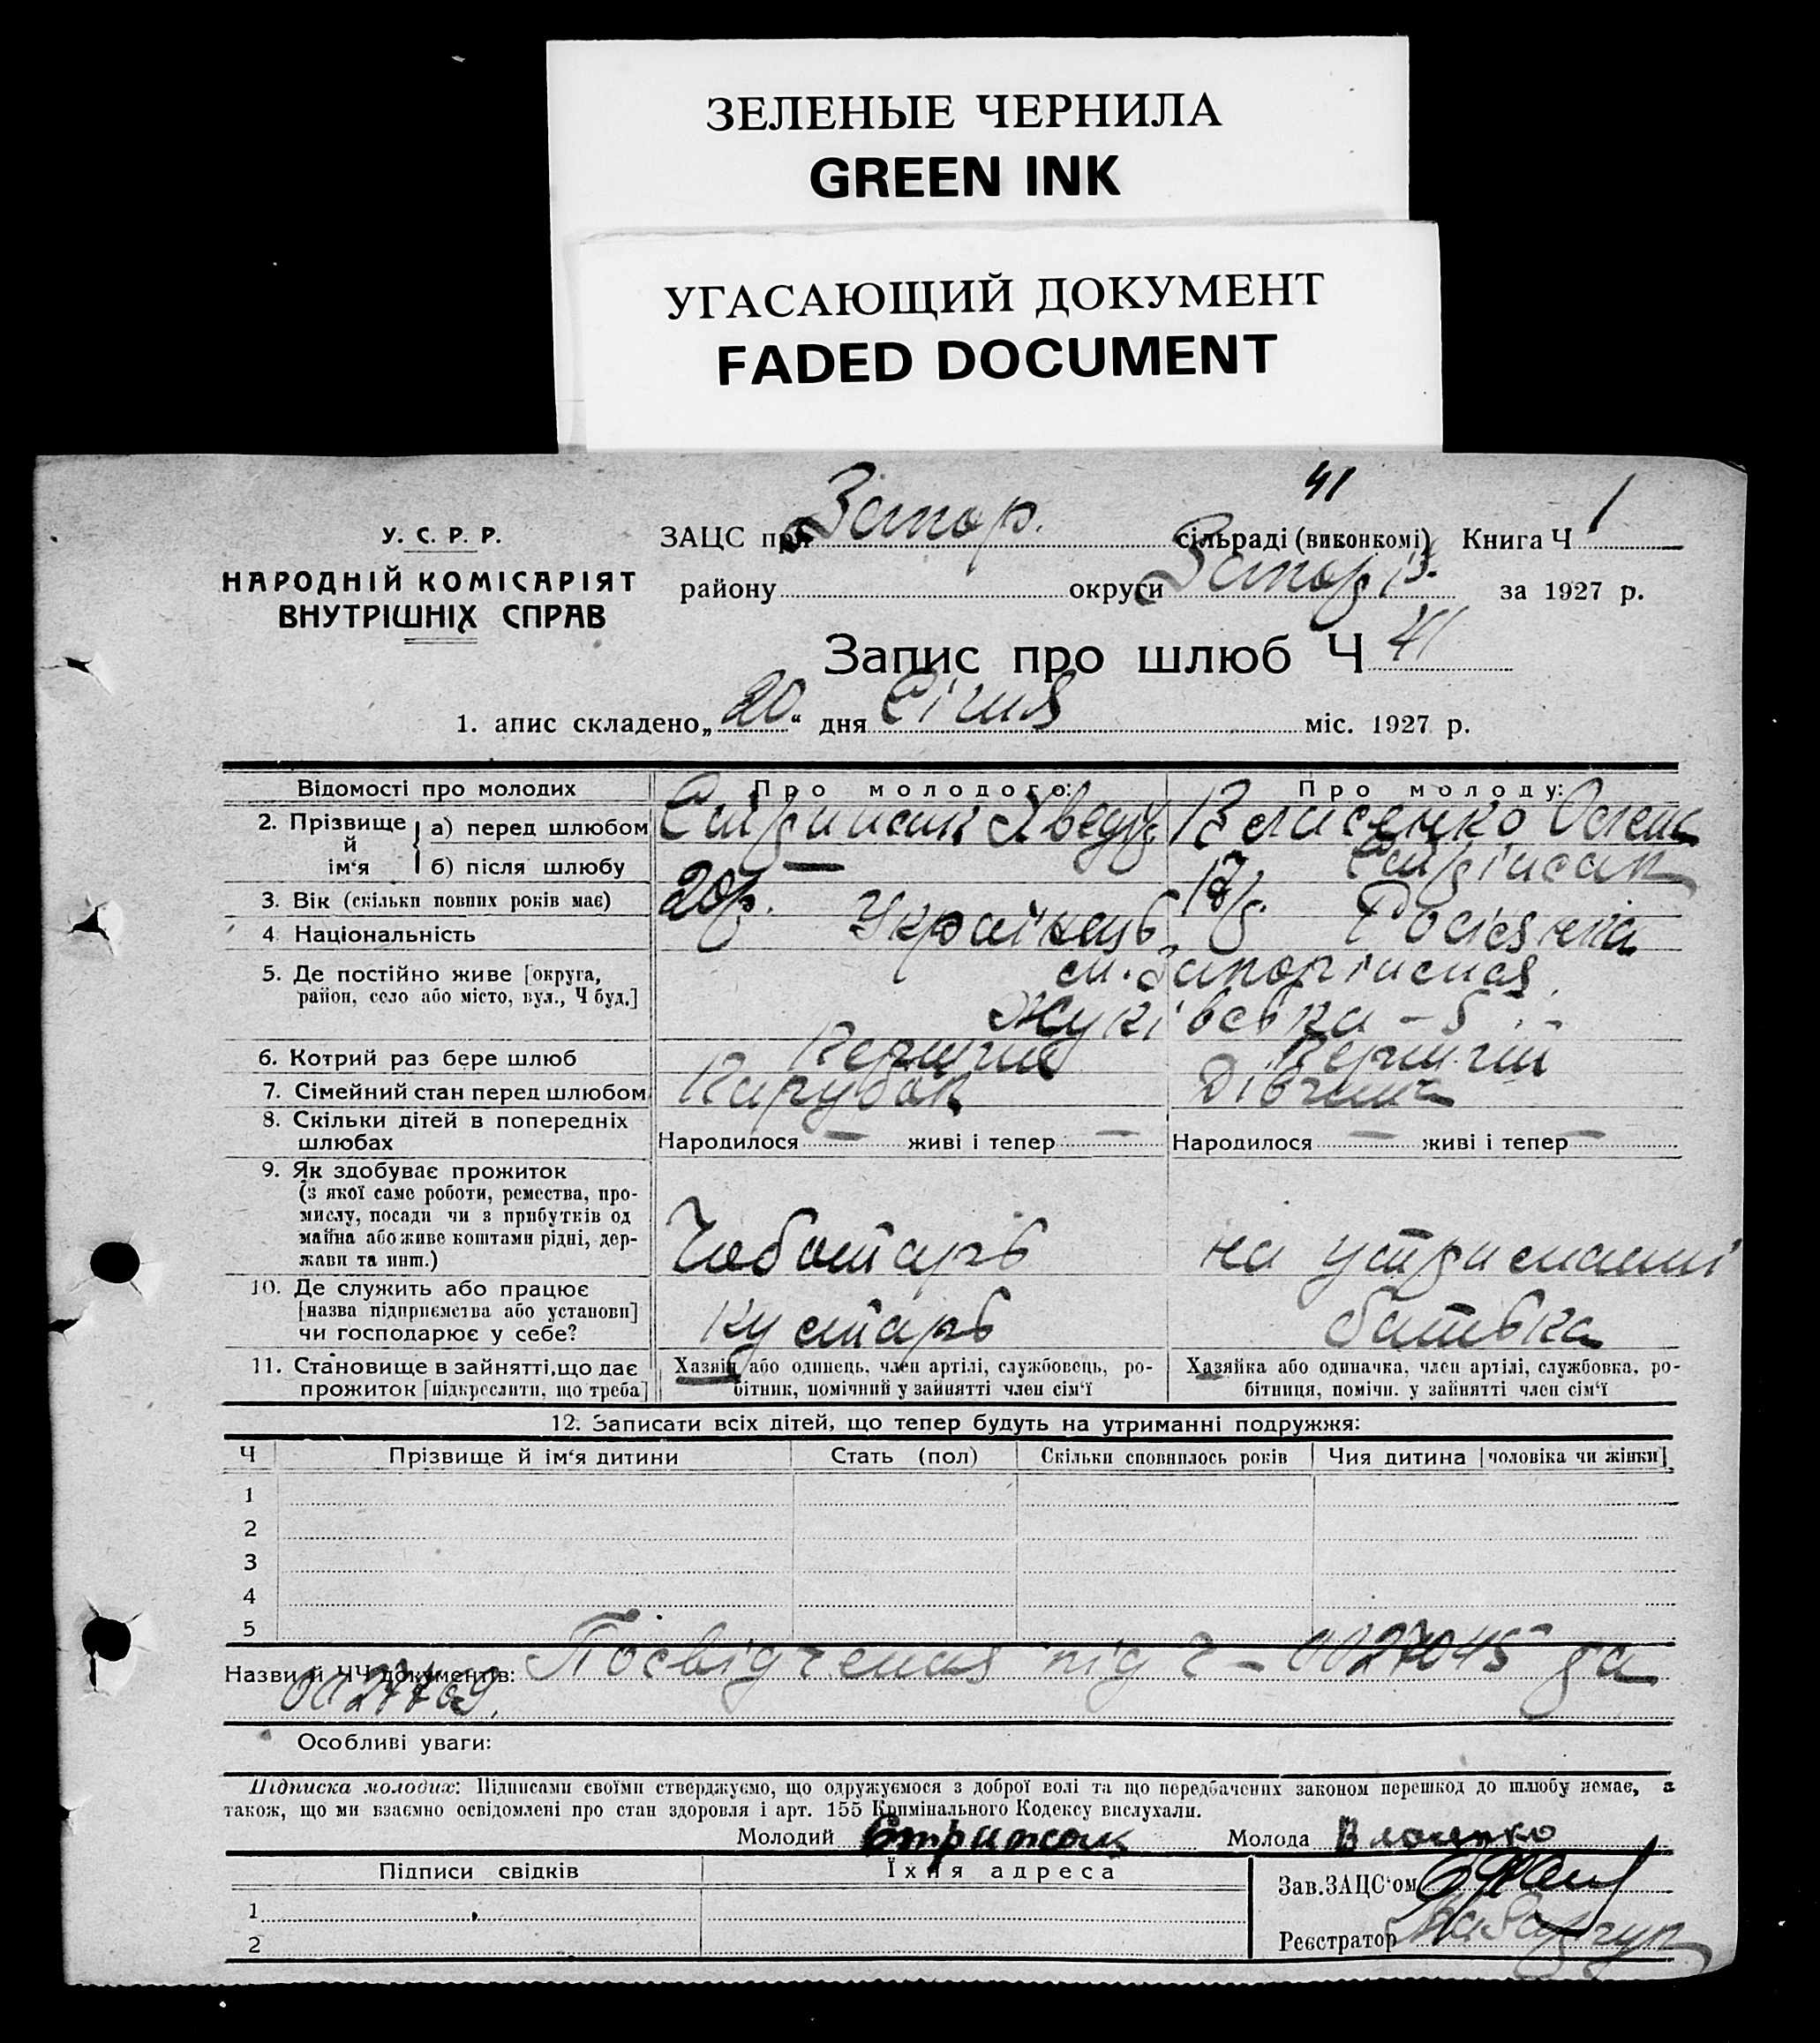 ЗЕЛЕНЫЕ ЧЕРНИЛА
GREEN INK
УГАСАЮЩИЙ ДОКУМЕНТ
FADED DOCUMENT
41
У. С. Р. Р.
НАРОДНІЙ КОМІСАРІЯТ
ВНУТРІШНІХ СПРАВ
ЗАЦС при Запор. сільраді (виконкомі) Книга Ч 1
району округи Запоріз. за 1927 р.
Запис про шлюб Ч 41
1. апис складено „20“ дня Січня міс. 1927 р.
Відомості про молодих Про молодого: Про молоду:
2. Прізвище й ім‘я
а) перед шлюбом Стрижак Хведір Власенко Олена
б) після шлюбу — Стріжак
3. Вік (скільки повних років має) 20 р. 18 р.
4. Національність Українець Росіянка
5. Де постійно живе [округа,
район, село або місто, вул., Ч буд.]
м. Запоріжжя
Жуківська – 5 . –
6. Котрий раз бере шлюб Перший Перший
7. Сімейний стан перед шлюбом Парубок Дівчина
8. Скільки дітей в попередніх
шлюбах
Народилося — живі і тепер — Народилося — живі і тепер —
9. Як здобуває прожиток
(з якої саме роботи, ремества, про-
мислу, посади чи з прибутків од
майна або живе коштами рідні, дер-
жави та инш.)
Чоботарь на утриманні
10. Де служить або працює
[назва підприємства або установи]
чи господарює у себе?
Кустарь батька
11. Становище в зайнятті, що дає
прожиток [підкреслити, що треба]
Хазяїн або одинець, член артілі, службовець, ро-
бітник, помічний у зайнятті член сім‘ї
Хазяйка або одиначка, член артілі, службовка, ро-
бітниця, помічн. у зайнятті член сім‘ї
12. Записати всіх дітей, що тепер будуть на утриманні подружжя:
Ч Прізвище й ім‘я дитини Стать (пол) Скільки сповнилось років Чия дитина [чоловіка чи жінки]
1
2
3
4
5
Назви й ЧЧ документів: Посвідчення під Ч – 0027045 да
0027769.
Особливі уваги:
Підписка молодих: Підписами своїми стверджуємо, що одружуємося з доброї волі та що передбачених законом перешкод до шлюбу немає, а
також, що ми взаємно освідомлені про стан здоровля і арт. 155 Кримінального Кодексу вислухали.
Молодий Стрижак Молода Власенко
Підписи свідків Їхня адреса
1
2
Зав. ЗАЦС‘ом
Реєстратор